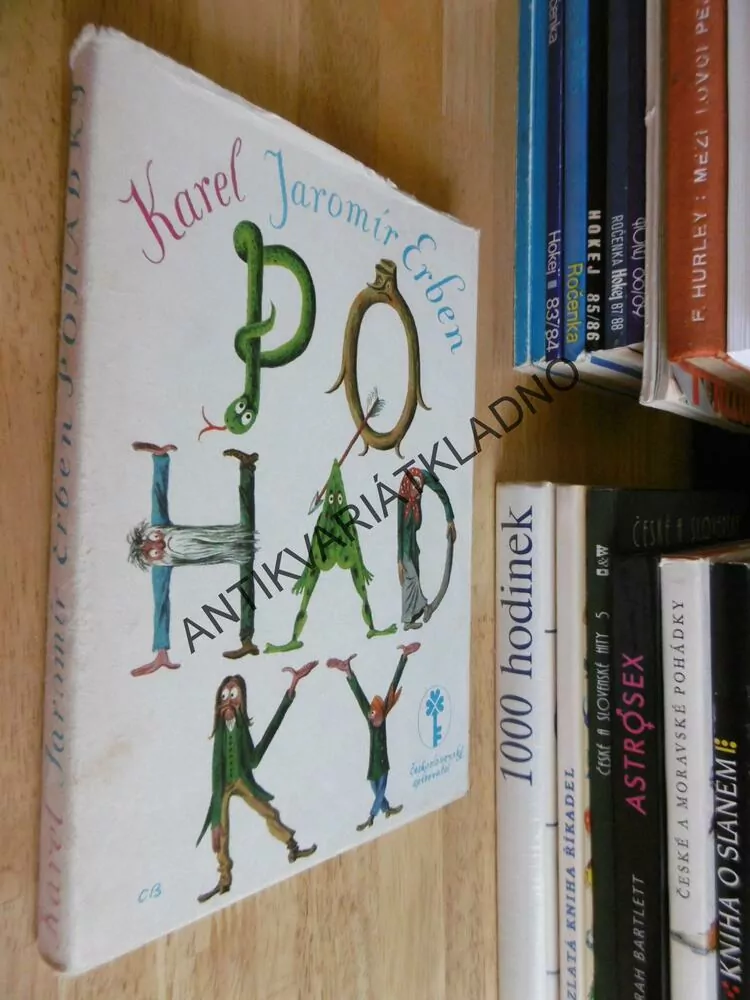 Karel Jaromír Erben
POHÁDKY
Československý
spisovatel
CB
Karel Jaromír Erben POHÁDKY
ANTIKVARIÁTKLADNO
Hokej 83/84
Ročenka
HOKEJ 85/86
ROČENKA Hokej 87/88
F. HURLEY: MEZI LOVCI
1000 hodinek
ZLATÁ KNIHA ŘÍKADEL
ČESKÉ A SLOVENSKÉ HITY 5
ČESKÉ A SLOVENSKÉ
ASTROSEX
RAH BARTLETT
ČESKÉ A MORAVSKÉ POHÁDKY
KNIHA O SLANÉM